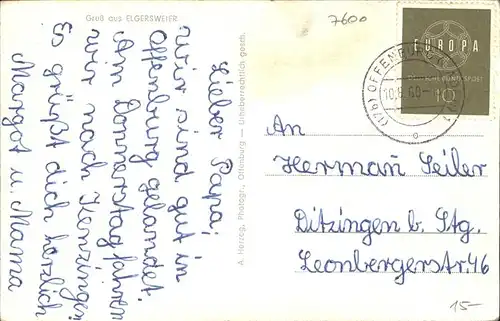 Gruß aus ELGERSWEIER
7600
Lieber Papa!
Wir sind gut in
Offenburg gelandet.
Am Donnerstag fahren
wir nach Kenzingen
Es grüßt dich herzlich
Margot u. Mama
A. Herzog, Photogr., Offenburg — Urheberrechtlich gesch.
EUROPA
DEUTSCHE BUNDESPOST
10
(17b) OFFENBURG
An
Herman Seiler
Ditzingen b. Stg.
Leonbergerstr. 46
15-